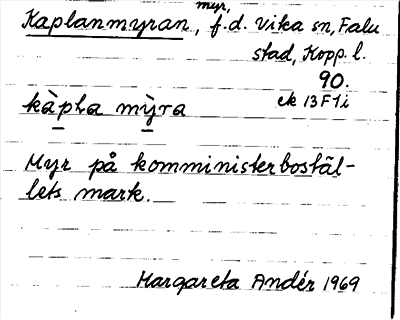 Kaplanmyran, myr, f.d. Vika sn, Falu
stad, Kopp. l.
90.
ek 13F1i
kàpla mỳra
Myr på komministerbostäl-
lets mark.
Margareta Andér 1969